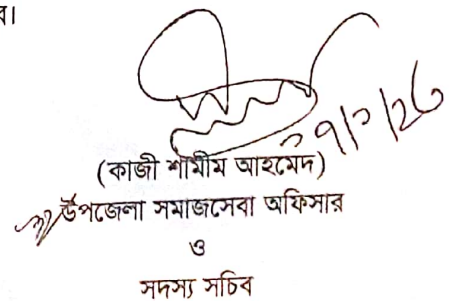 ।
(কাজী শামীম আহমেদ)
উপজেলা সমাজসেবা অফিসার
ও
সদস্য সচিব